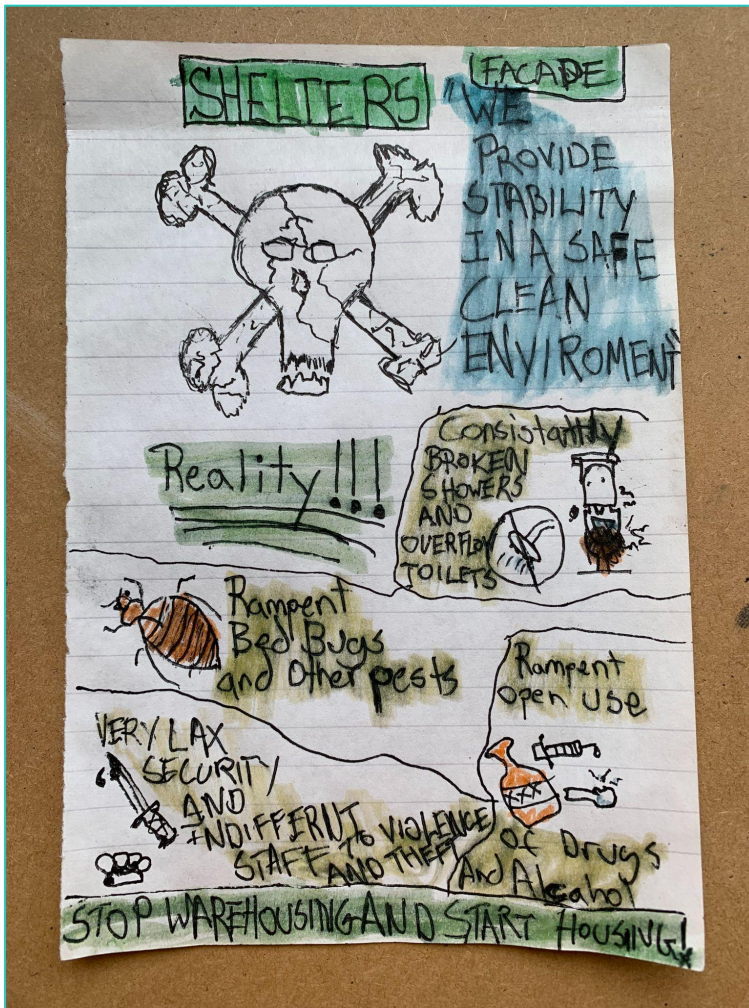 SHELTERS
FACADE
"WE
PROVIDE
STABILITY
IN A SAFE
CLEAN
ENVIROMENT"
Reality!!!
Consistantly
BROKEN
SHOWERS
AND
OVERFLOW
TOILETS
Rampent
Bed Bugs
and Other pests
Rampent
open use
XXX
of Drugs
And Alcahol
VERY LAX
SECURITY
AND
INDIFFERNT TO VIOLENCE
STAFF AND THEFT
STOP WAREHOUSING AND START HOUSING!